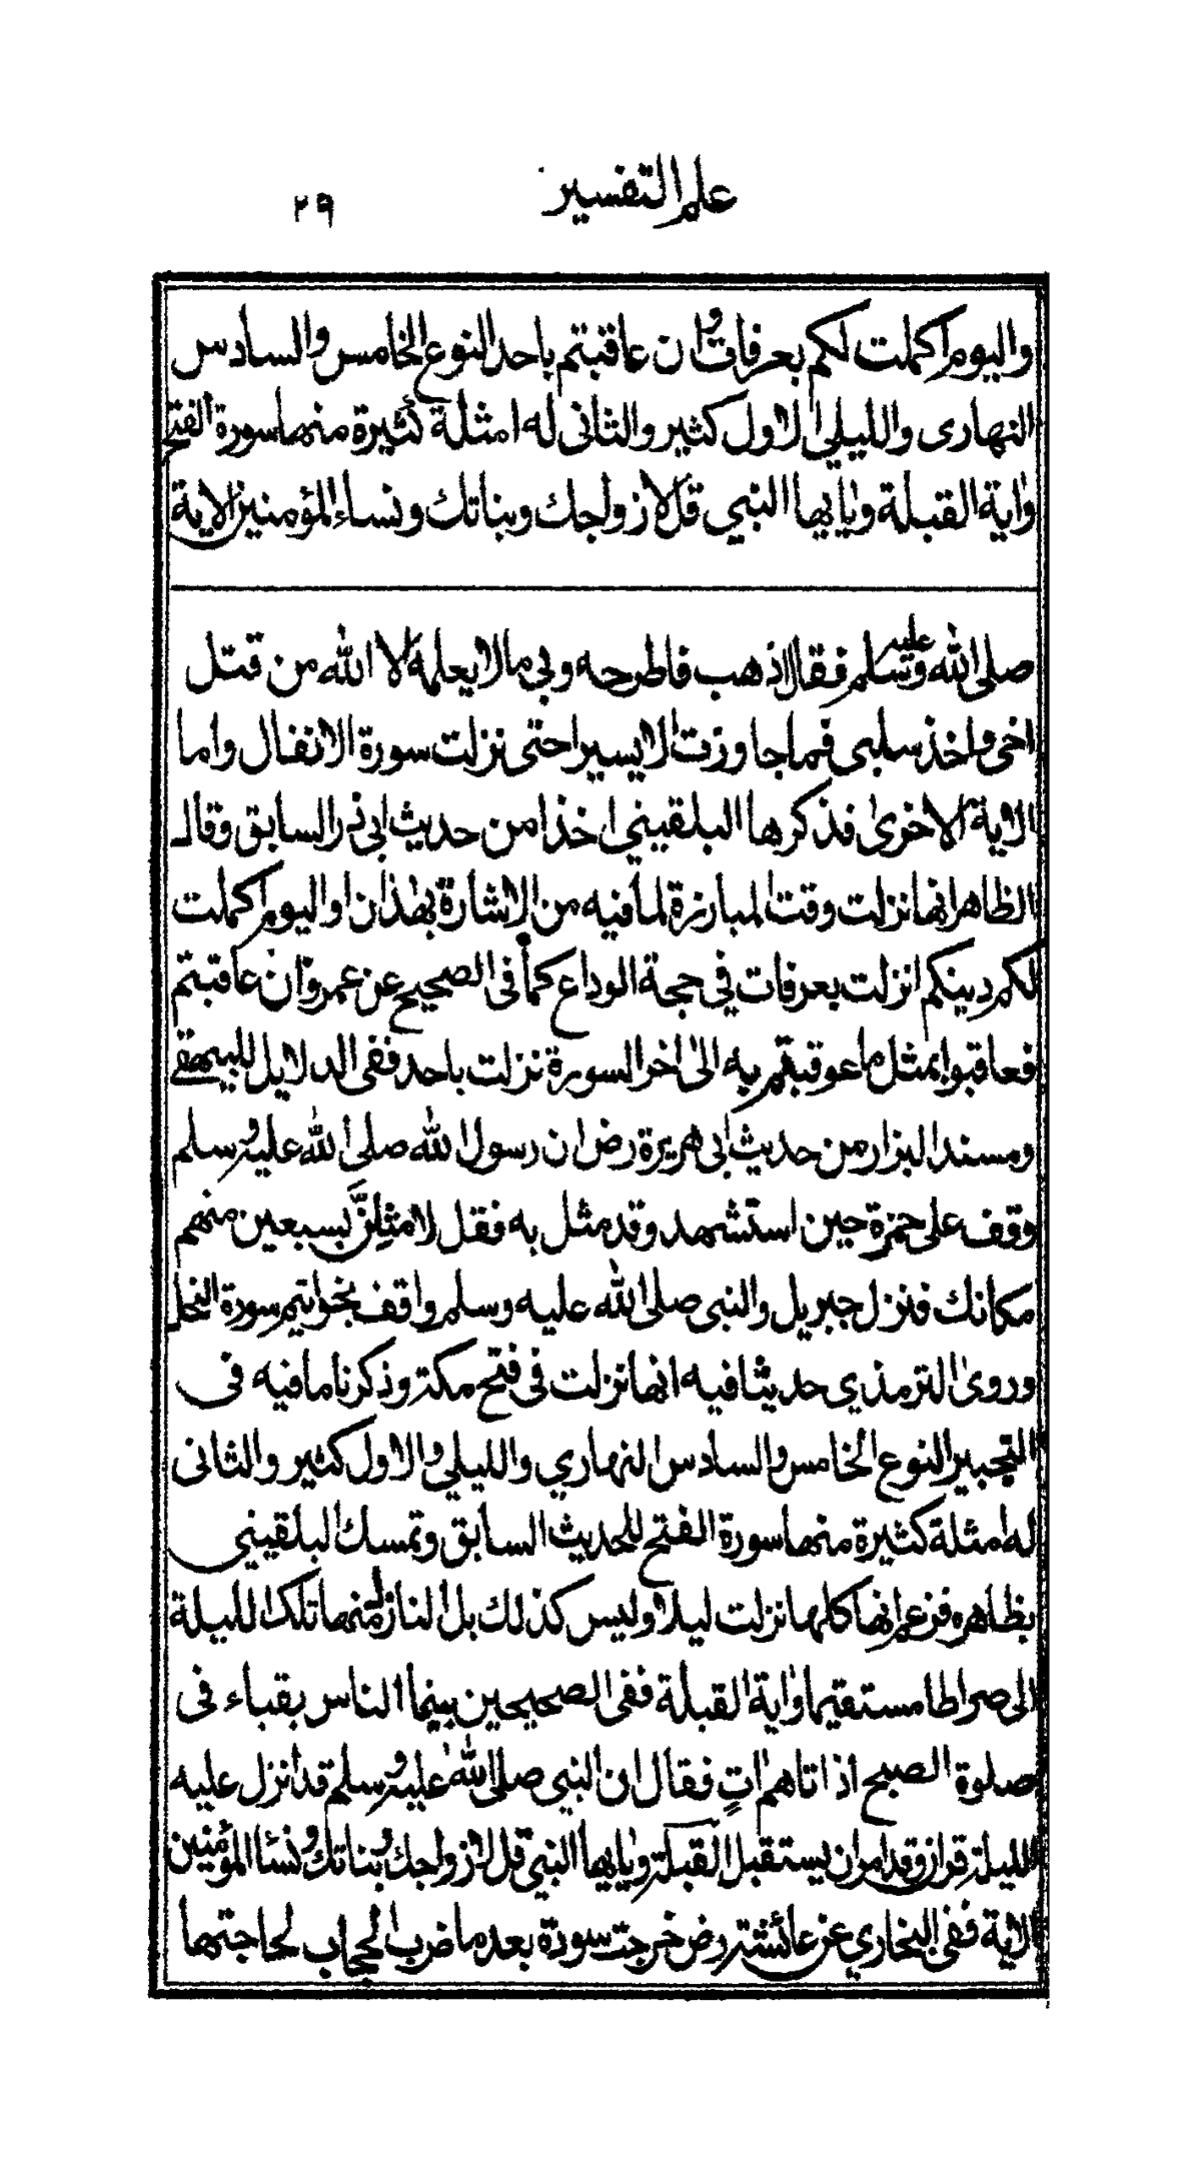 علم التفسير ٢٩
واليوم اكملت لكم بعرفات وان عاقبتم باحد النوع الخامس والسادس
النهارى والليلي الاول كثير والثانى له امثلة كثيرة منها سورة الفتح
واية القبلة ويايها النبي قل لازواجك وبناتك ونساء المؤمنين الاية
صلى الله عليه وسلم فقال اذهب فاطرحه وبي ما لا يعلمه الا الله من قتل
اخى واخذ سلبى فما جاوزت الا يسيرا حتى نزلت سورة الانفال واما
الاية الاخرى فذكرها البلقيني اخذا من حديث ابى ذر السابق وقال
الظاهر انها نزلت وقت المبارزة لما فيه من الاشارة بهذان او اليوم اكملت
لكم دينكم انزلت بعرفات في حجة الوداع كما فى الصحيح عن عمر وان عاقبتم
فعاقبوا بمثل ما عوقبتم به الى اخر السورة نزلت باحد ففى الدلايل للبيهقے
ومسند البزار من حديث ابى هريرة رض ان رسول الله صلى الله عليه وسلم
وقف على حمزة حين استشهد وقد مثل به فقل لامثلنَّ بسبعين منهم
مكانك فنزل جبريل والنبى صلى الله عليه وسلم واقف بخواتيم سورة النحل
وروى الترمذي حديثا فيه انها نزلت فى فتح مكة وذكرنا ما فيه فى
التحبير النوع الخامس والسادس النهاري والليلي والاول كثير والثانى
له امثلة كثيرة منها سورة الفتح للحديث السابق وتمسك البلقيني
بظاهره فزعم انها كلها نزلت ليلا وليس كذلك بل النازل منها تلك الليلة
الى صراطا مستقيما واية القبلة ففى الصحيحين بينما الناس بقباء فى
صلوة الصبح اذ اتاهم اتٍ فقال ان النبي صلى الله عليه وسلم قد انزل عليه
الليلة قران وقد امر ان يستقبل القبلة ويايها النبي قل لازواجك وبناتك ونسا المؤمنين
الاية ففى البخاري عن عائشة رض خرجت سودة بعد ما ضرب الحجاب لحاجتها